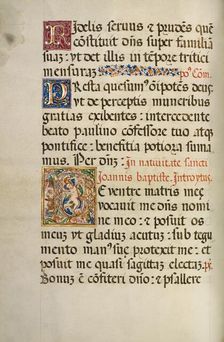 Fidelis seruus & prudẽs quẽ
cõstituit dñs super familiã
suaȝ: ut det illis in tẽpore tritici
mensuraȝ. pꝰ Com̃.
Presta quesumꝰ oĩpotẽs deus
ut de perceptis muneribus
gratias exibentes: intercedente
beato paulino cõfessore tuo atqȝ
pontifice: benefitia potiora suma
mus. Per dñȝ: In natiuitate sancti
Ioannis baptiste. Introytus.
De ventre matris meȩ
vocauit me dñs nomi
ne meo: & posuit os
meuȝ ut gladiuȝ acutuȝ: sub tegu
mento manꝰ suȩ protexit me: et
posuit me quasi sagittaȝ electaȝ. ps.
Bonuȝ ẽ cõfiteri dño: & psallere